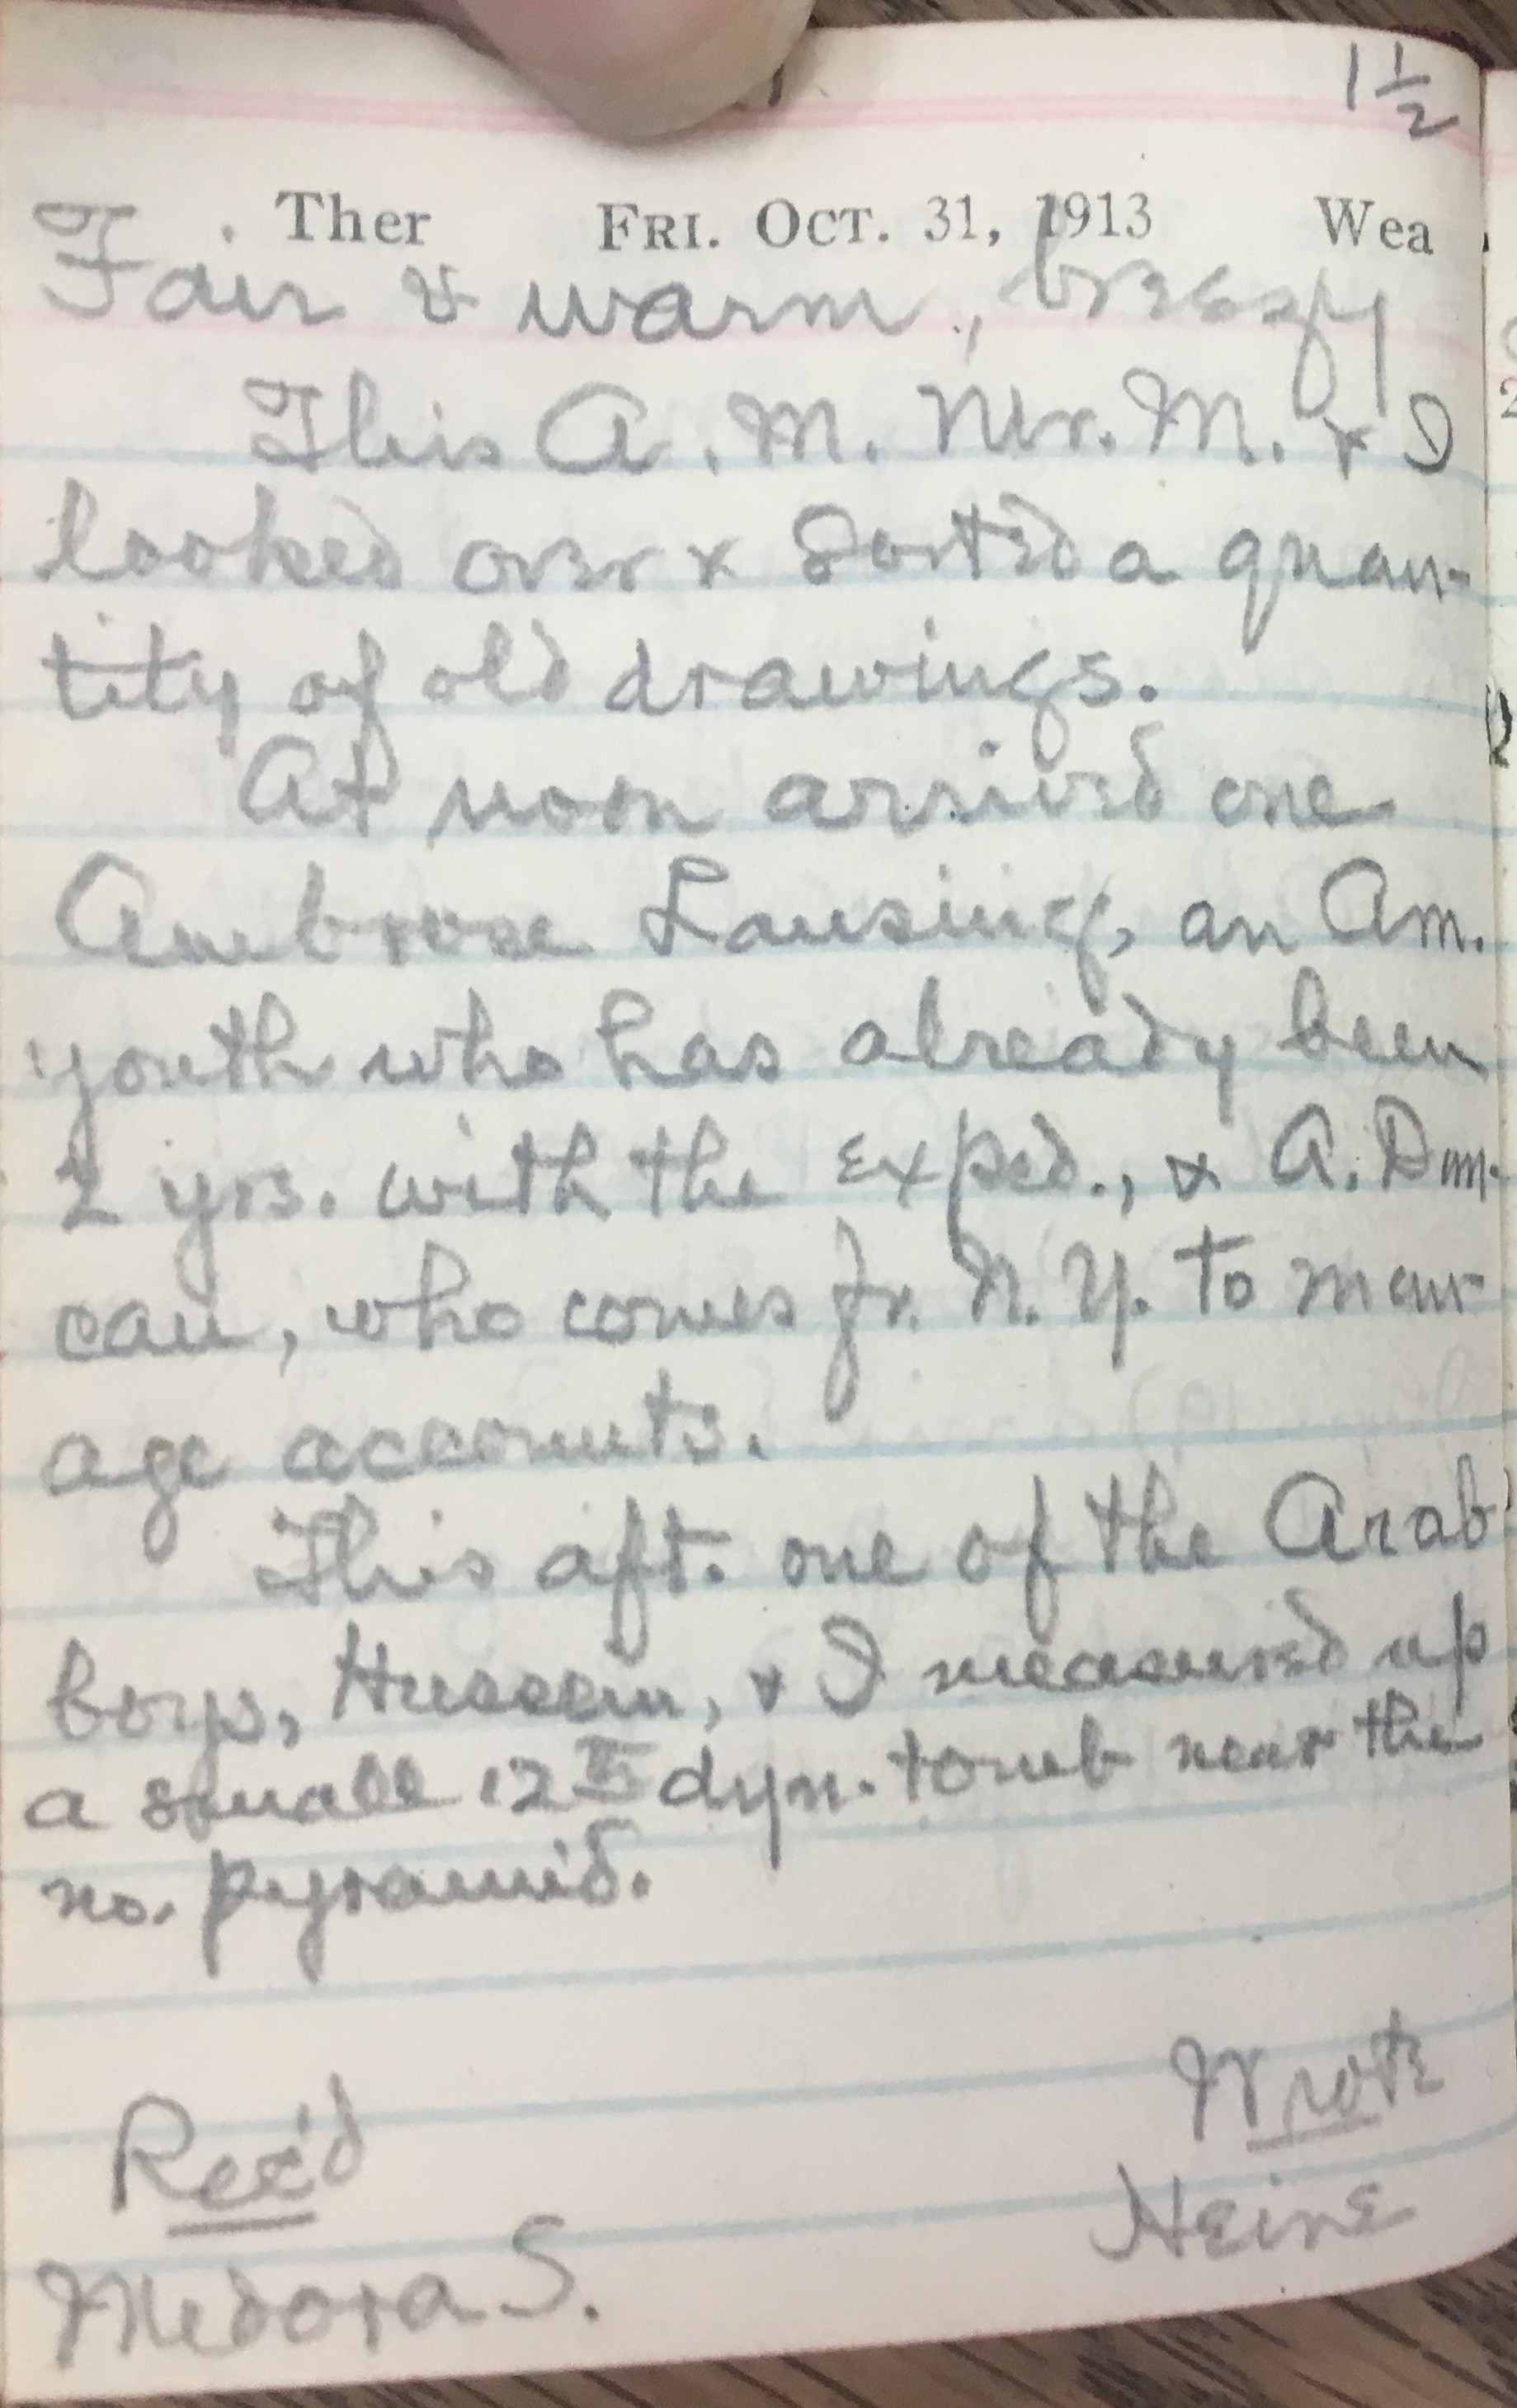 1 1/2
Ther FRI. OCT. 31, 1913 Wea
Fair & warm, breezy
This A.M. Mr. M. & I
looked over & sorted a quan-
tity of old drawings.
At noon arrived one
Ambrose Lansing, an Am.
youth who has already been
2 yrs. with the exped., & A. Dun-
can, who comes fr. N.Y. to man-
age accounts.
This aft. one of the Arab
boys, Hussein, & I measured up
a small 12th dyn. tomb near the
no. pyramid.
Wrote
Rec'd
Heine
Medora S.